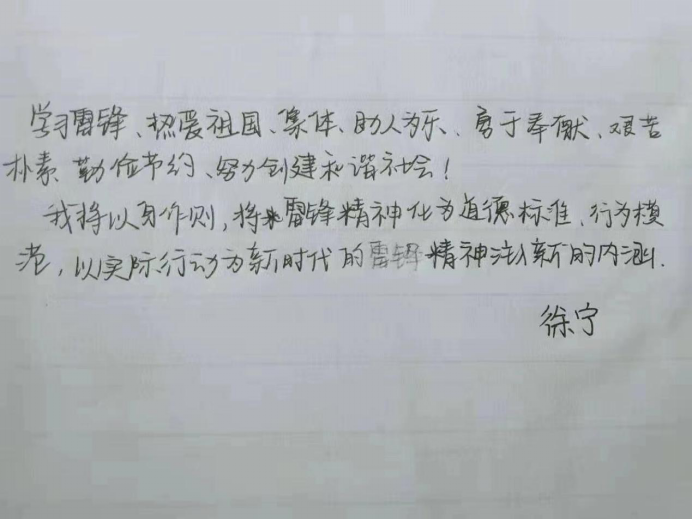 学习雷锋、热爱祖国、集体、助人为乐、勇于奉献、艰苦
朴素、勤俭节约、努力创建和谐社会！
我将以身作则，将雷锋精神化为道德标准、行为模
范，以实际行动为新时代的雷锋精神注入新的内涵.
徐宁